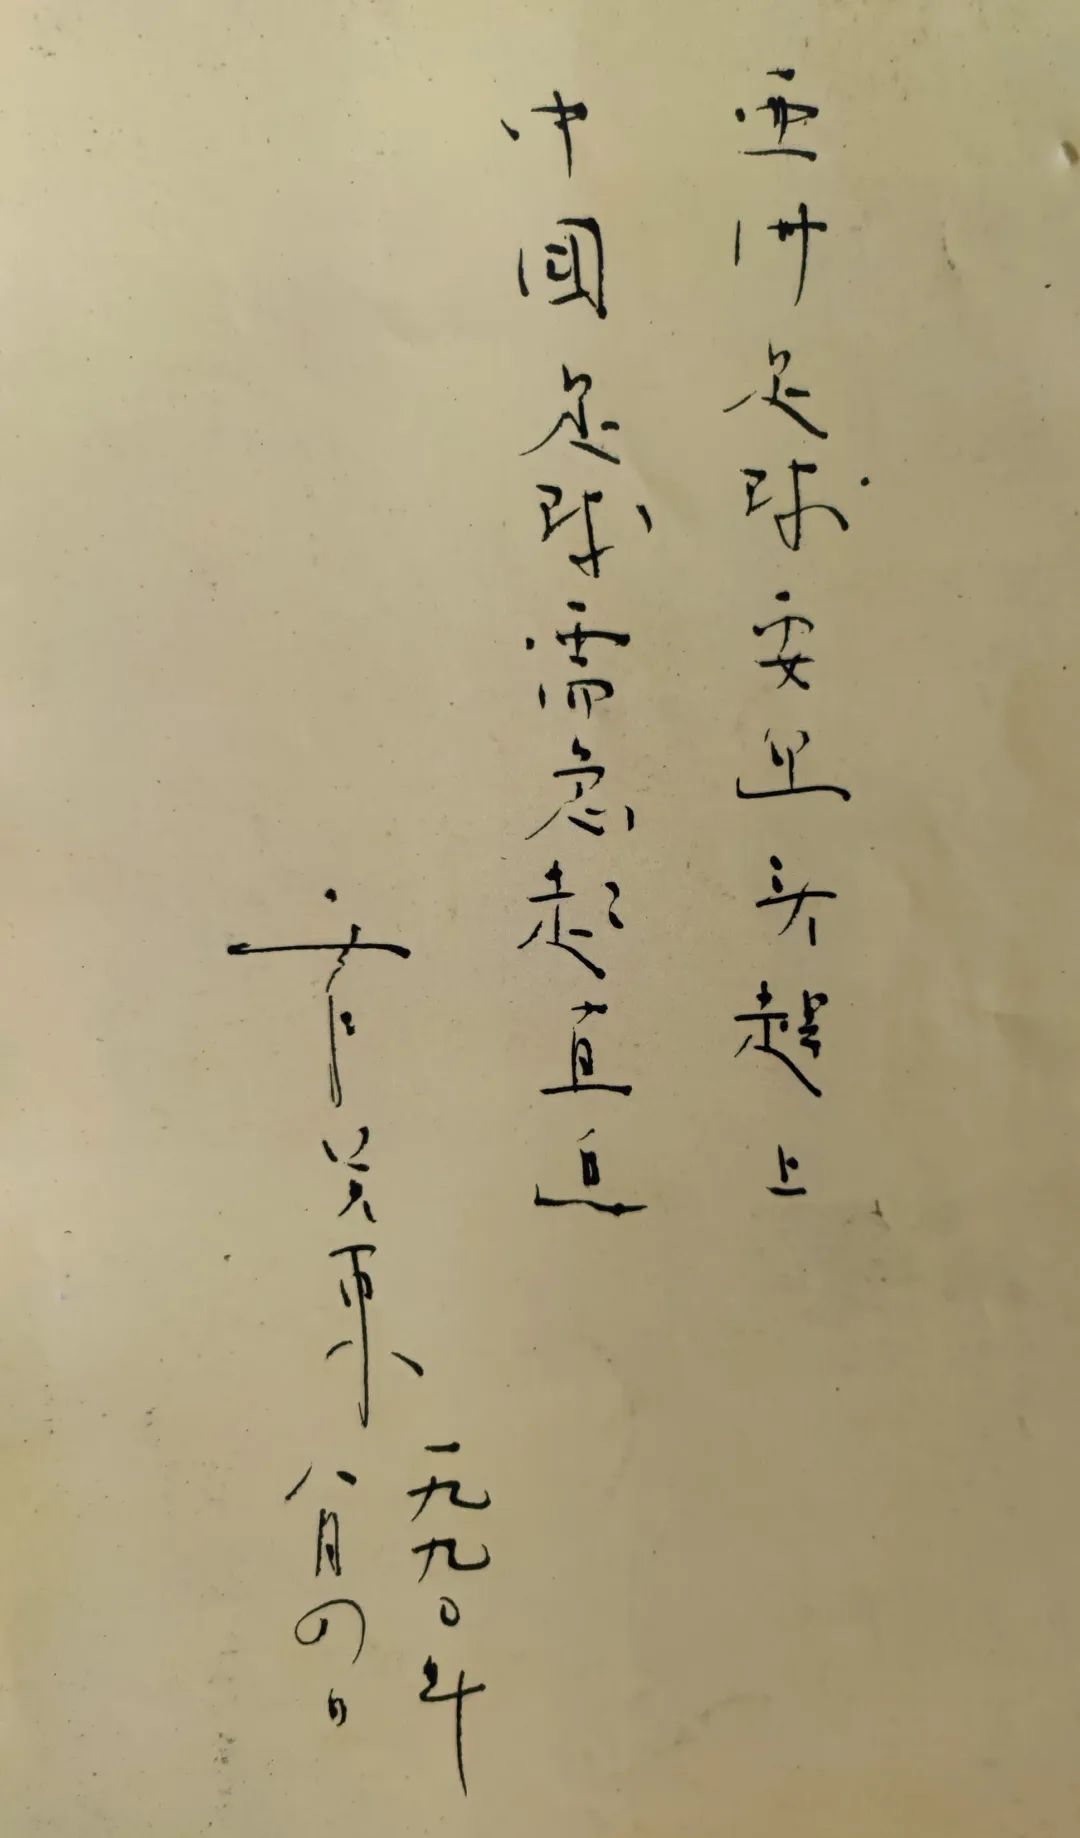 亚洲足球要迎头趕上
中国足球需急起直追
一九九〇年
八月四日